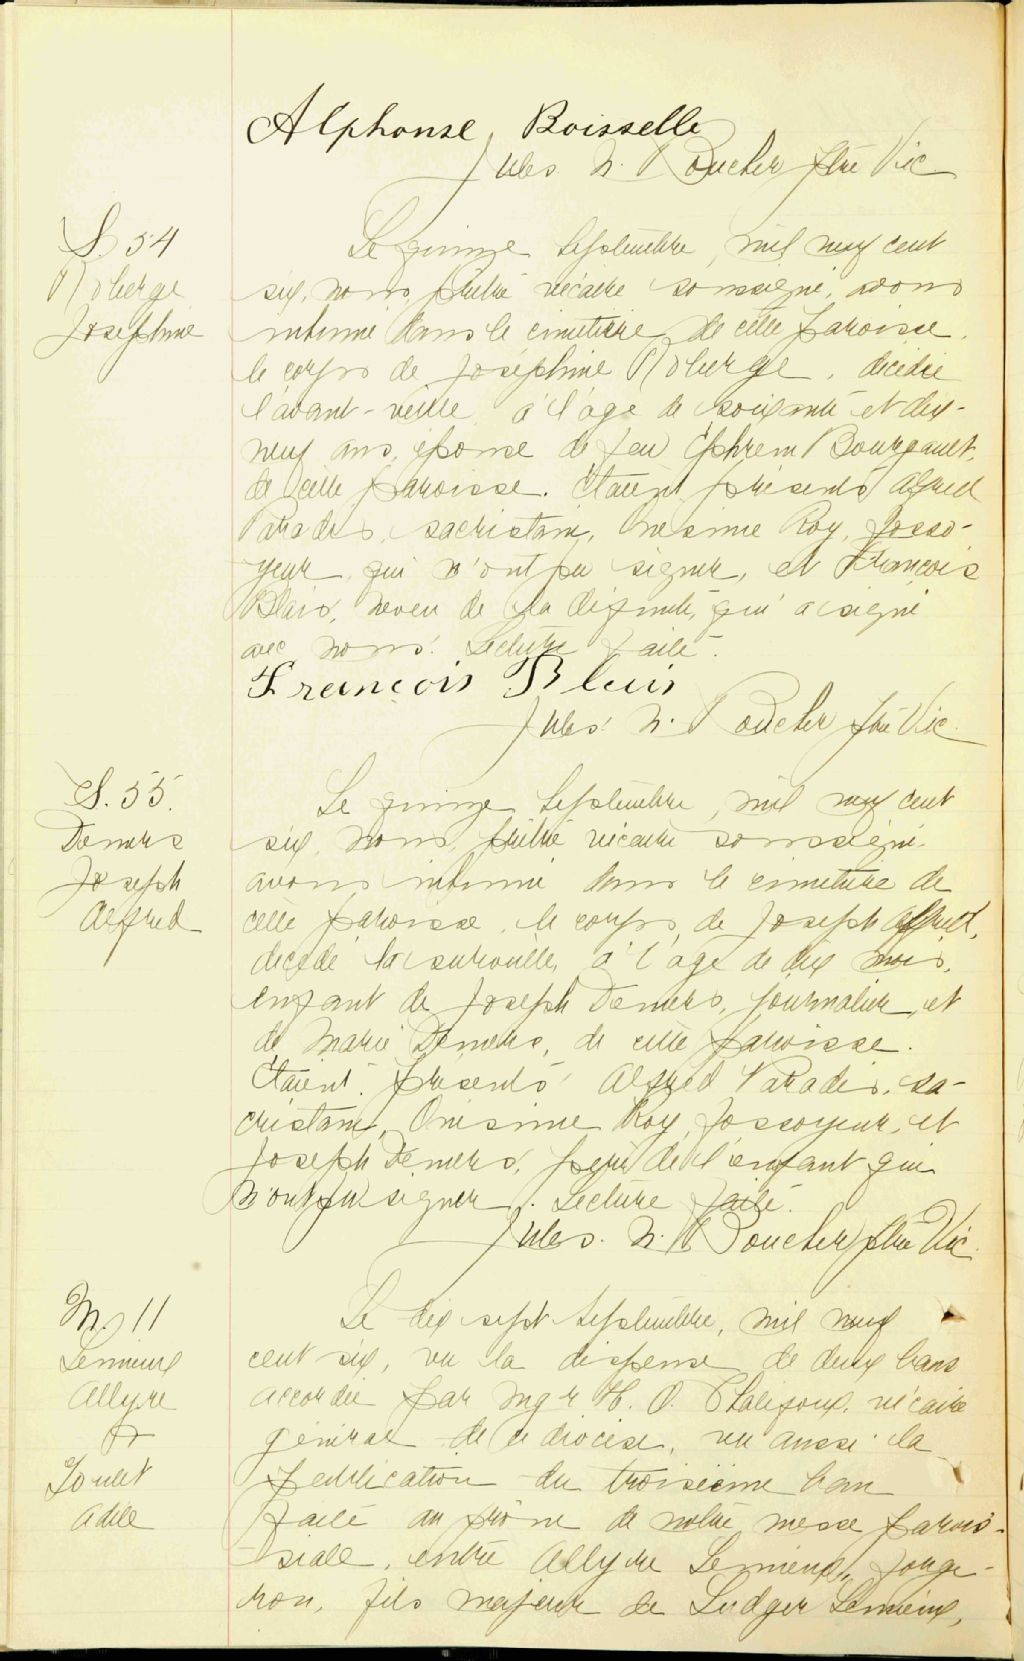 Alphonse Boisselle
Jules N. Boucher ptre Vic
S. 54
Roberge
Joséphine
Le quinze Septembre, mil neuf cent
six, nous, prêtre vicaire soussigné, avons
inhumé dans le cimetière de cette paroisse,
le corps de Joséphine Roberge, décédée
l'avant-veille à l'âge de soixante et dix-
neuf ans, épouse de feu Ephrem Bourgault,
de cette paroisse. Etaient présents Alfred
Paradis, sacristain, Onésime Roy, fosso-
yeur, qui n'ont pu signer, et François
Blais, neveu de la défunte, qui a signé
avec nous. Lecture faite.
François Blais
Jules N. Boucher ptre Vic.
S. 55.
Demers
Joseph
Alfred
Le quinze Septembre, mil neuf cent
six, nous, prêtre vicaire soussigné
avons inhumé dans le cimetière de
cette paroisse, le corps de Joseph Alfred,
décédé la surveille, à l'âge de dix mois,
enfant de Joseph Demers, journalier, et
de Marie Demers, de cette paroisse.
Etaient présents Alfred Paradis, sa-
cristain, Onésime Roy, fossoyeur, et
Joseph Demers, père de l'enfant qui
n'ont pu signer. Lecture faite.
Jules. N. Boucher ptre Vic.
M. 11
Lemieux
Allyre
&
Goulet
Adèle
Le dix sept Septembre, mil neuf
cent six, vu la dispense de deux bans
accordée par Mgr H. O. Chalifoux, vicaire
général de ce diocèse, vu aussi la
publication du troisième ban
faite au prône de notre messe parois-
siale, entre Allyre Lemieux, forge-
ron, fils majeur de Ludger Lemieux,